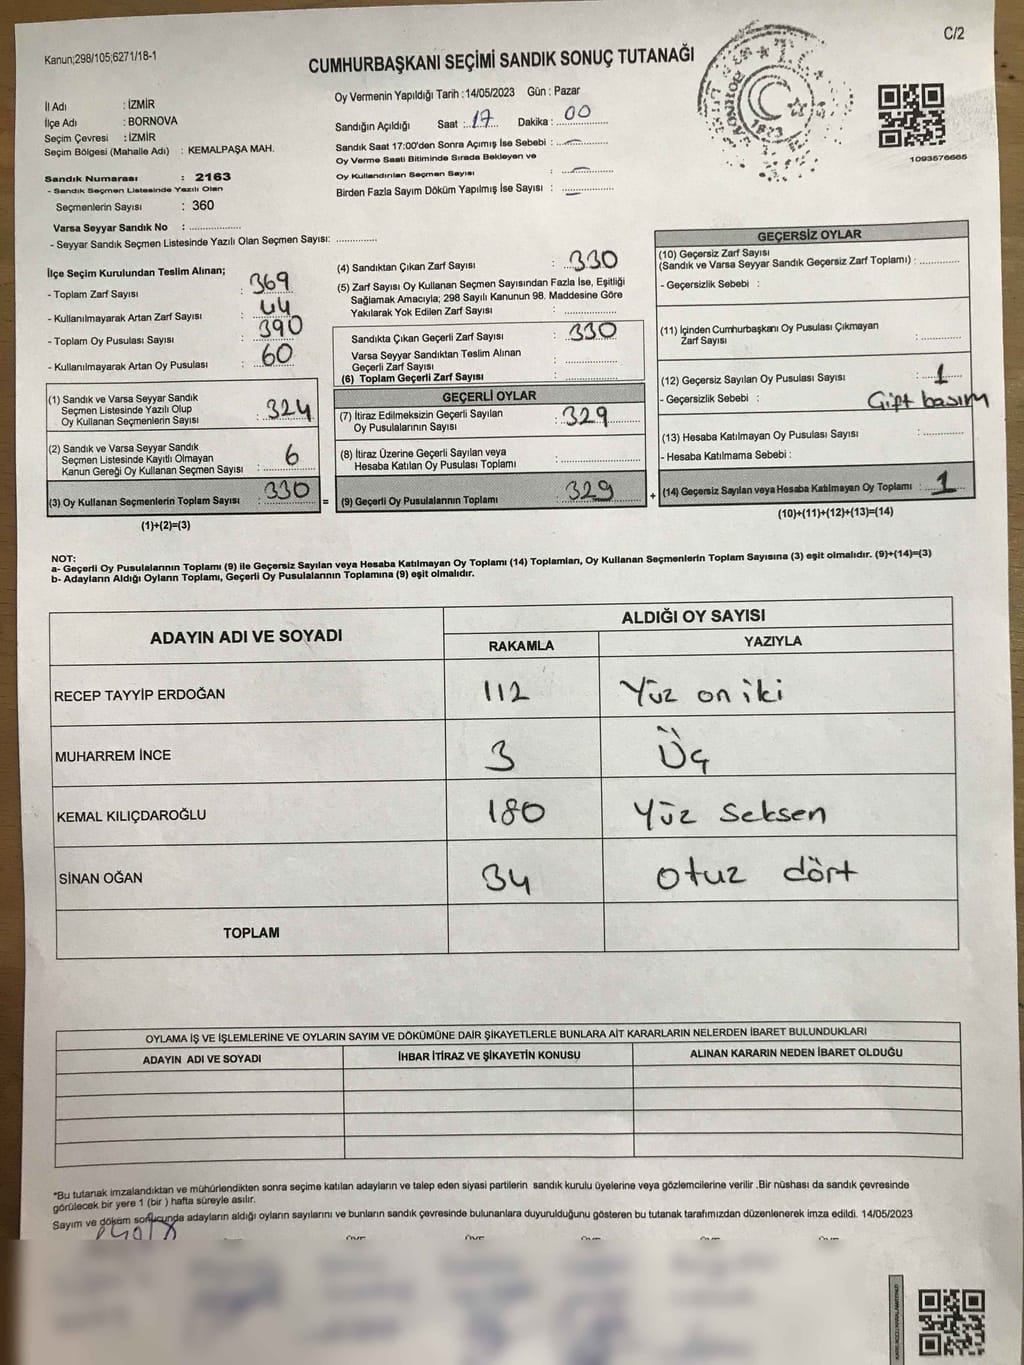 Kanun;298/105;6271/18-1
C/2
CUMHURBAŞKANI SEÇİMİ SANDIK SONUÇ TUTANAĞI
İl Adı : İZMİR
İlçe Adı : BORNOVA
Seçim Çevresi : İZMİR
Seçim Bölgesi (Mahalle Adı) : KEMALPAŞA MAH.
Sandık Numarası : 2163
- Sandık Seçmen Listesinde Yazılı Olan
Seçmenlerin Sayısı : 360
Varsa Seyyar Sandık No : ...................
- Seyyar Sandık Seçmen Listesinde Yazılı Olan Seçmen Sayısı: ...............
Oy Vermenin Yapıldığı Tarih :14/05/2023 Gün : Pazar
Sandığın Açıldığı Saat : 17 Dakika : 00
Sandık Saat 17:00'den Sonra Açımış İse Sebebi :
Oy Verme Saati Bitiminde Sırada Bekleyen ve
Oy Kullandırılan Seçmen Sayısı :
Birden Fazla Sayım Döküm Yapılmış İse Sayısı :
1093676665
T.C.
BORNOVA
1823
İlçe Seçim Kurulundan Teslim Alınan;
- Toplam Zarf Sayısı : 369
- Kullanılmayarak Artan Zarf Sayısı : 44
- Toplam Oy Pusulası Sayısı : 390
- Kullanılmayarak Artan Oy Pusulası : 60
(1) Sandık ve Varsa Seyyar Sandık
Seçmen Listesinde Yazılı Olup
Oy Kullanan Seçmenlerin Sayısı : 324
(2) Sandık ve Varsa Seyyar Sandık
Seçmen Listesinde Kayıtlı Olmayan
Kanun Gereği Oy Kullanan Seçmen Sayısı : 6
(3) Oy Kullanan Seçmenlerin Toplam Sayısı : 330
(1)+(2)=(3)
=
(4) Sandıktan Çıkan Zarf Sayısı : 330
(5) Zarf Sayısı Oy Kullanan Seçmen Sayısından Fazla İse, Eşitliği
Sağlamak Amacıyla; 298 Sayılı Kanunun 98. Maddesine Göre
Yakılarak Yok Edilen Zarf Sayısı :
Sandıkta Çıkan Geçerli Zarf Sayısı : 330
Varsa Seyyar Sandıktan Teslim Alınan
Geçerli Zarf Sayısı :
(6) Toplam Geçerli Zarf Sayısı :
GEÇERLİ OYLAR
(7) İtiraz Edilmeksizin Geçerli Sayılan
Oy Pusulalarının Sayısı : 329
(8) İtiraz Üzerine Geçerli Sayılan veya
Hesaba Katılan Oy Pusulası Toplamı :
(9) Geçerli Oy Pusulalarının Toplamı : 329
+
GEÇERSİZ OYLAR
(10) Geçersiz Zarf Sayısı
(Sandık ve Varsa Seyyar Sandık Geçersiz Zarf Toplamı) : ............
- Geçersizlik Sebebi :
(11) İçinden Cumhurbaşkanı Oy Pusulası Çıkmayan
Zarf Sayısı :
(12) Geçersiz Sayılan Oy Pusulası Sayısı : 1
- Geçersizlik Sebebi : Çift basım
(13) Hesaba Katılmayan Oy Pusulası Sayısı :
- Hesaba Katılmama Sebebi :
(14) Geçersiz Sayılan veya Hesaba Katılmayan Oy Toplamı : 1
(10)+(11)+(12)+(13)=(14)
NOT:
a- Geçerli Oy Pusulalarının Toplamı (9) ile Geçersiz Sayılan veya Hesaba Katılmayan Oy Toplamı (14) Toplamları, Oy Kullanan Seçmenlerin Toplam Sayısına (3) eşit olmalıdır. (9)+(14)=(3)
b- Adayların Aldığı Oyların Toplamı, Geçerli Oy Pusulalarının Toplamına (9) eşit olmalıdır.
ADAYIN ADI VE SOYADI
ALDIĞI OY SAYISI
RAKAMLA YAZIYLA
RECEP TAYYİP ERDOĞAN 112 Yüz on iki
MUHARREM İNCE 3 Üç
KEMAL KILIÇDAROĞLU 180 Yüz Seksen
SİNAN OĞAN 34 otuz dört
TOPLAM
OYLAMA İŞ VE İŞLEMLERİNE VE OYLARIN SAYIM VE DÖKÜMÜNE DAİR ŞİKAYETLERLE BUNLARA AİT KARARLARIN NELERDEN İBARET BULUNDUKLARI
ADAYIN ADI VE SOYADI İHBAR İTİRAZ VE ŞİKAYETİN KONUSU ALINAN KARARIN NEDEN İBARET OLDUĞU
*Bu tutanak imzalandıktan ve mühürlendikten sonra seçime katılan adayların ve talep eden siyasi partilerin sandık kurulu üyelerine veya gözlemcilerine verilir .Bir nüshası da sandık çevresinde
görülecek bir yere 1 (bir ) hafta süreyle asılır.
Sayım ve döküm sonucunda adayların aldığı oyların sayılarını ve bunların sandık çevresinde bulunanlara duyurulduğunu gösteren bu tutanak tarafımızdan düzenlenerek imza edildi. 14/05/2023